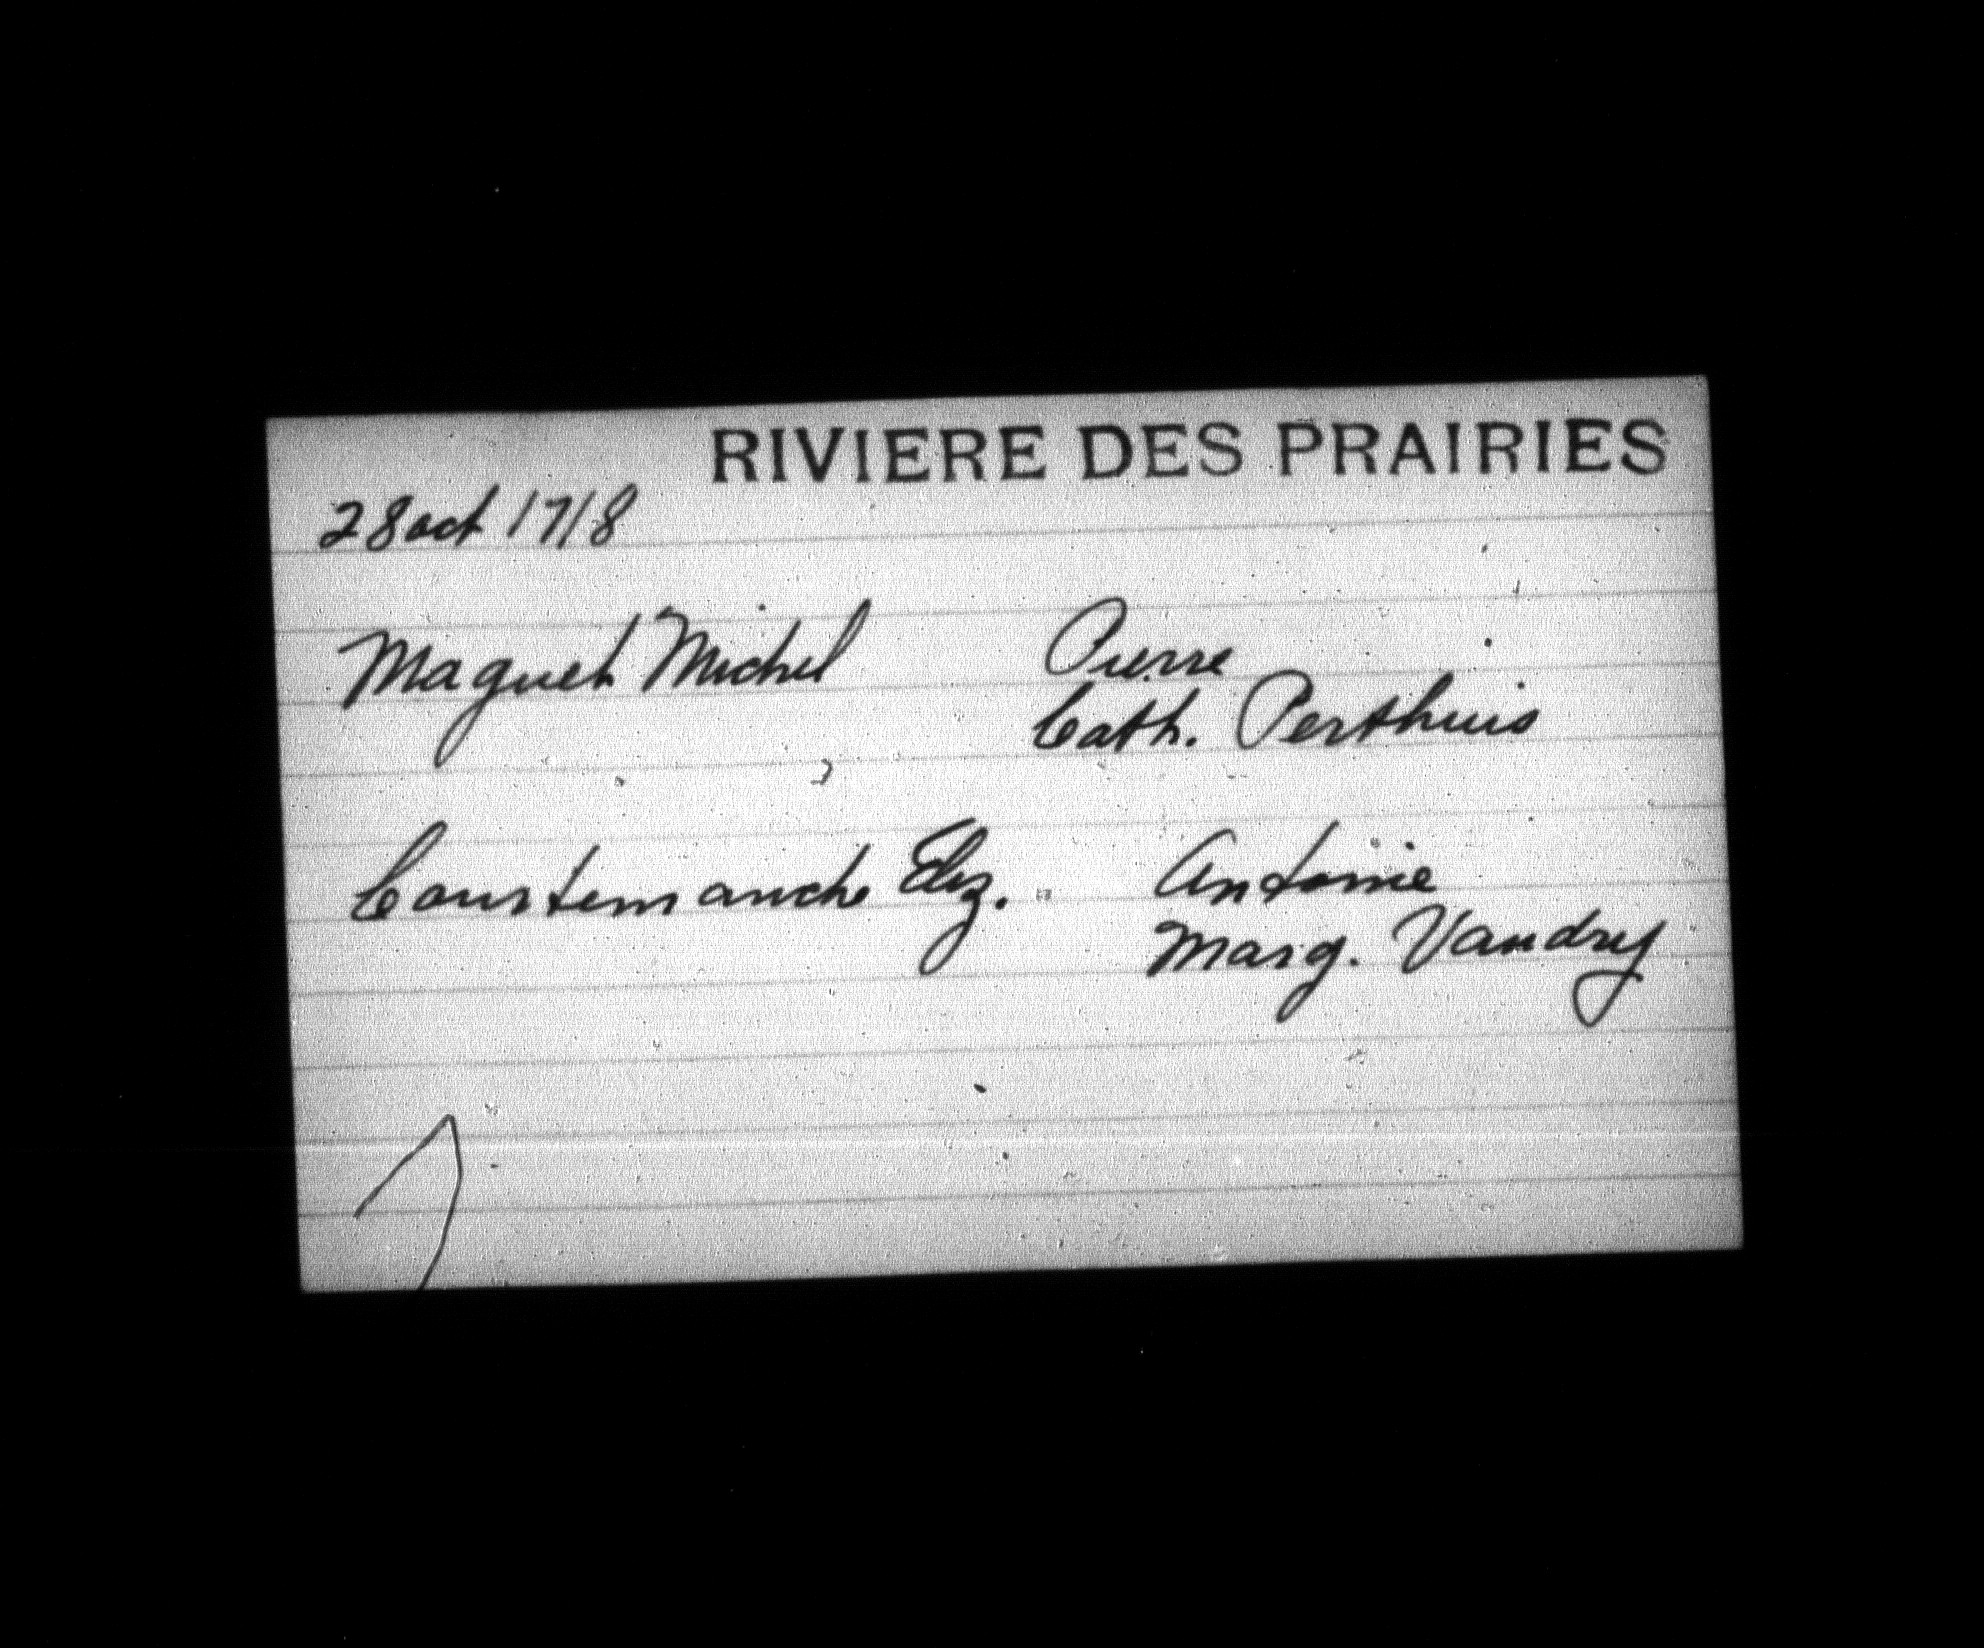 RIVIERE DES PRAIRIES
28 oct 1718
Maguet Michel Pierre
Cath. Perthuis
Courtemanche Eliz. Antoine
Marg. Vaudry